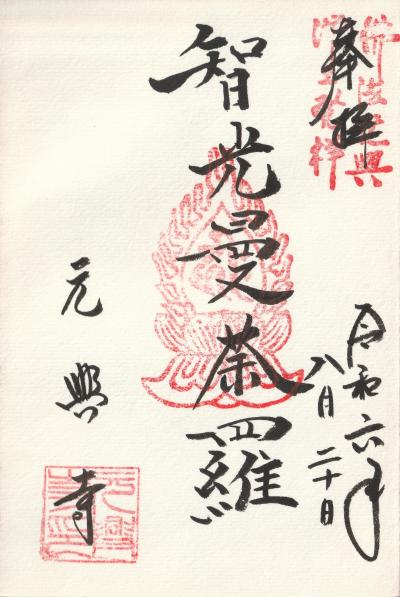 奉拝
令和六年
八月二十日
智光曼荼羅
元興寺